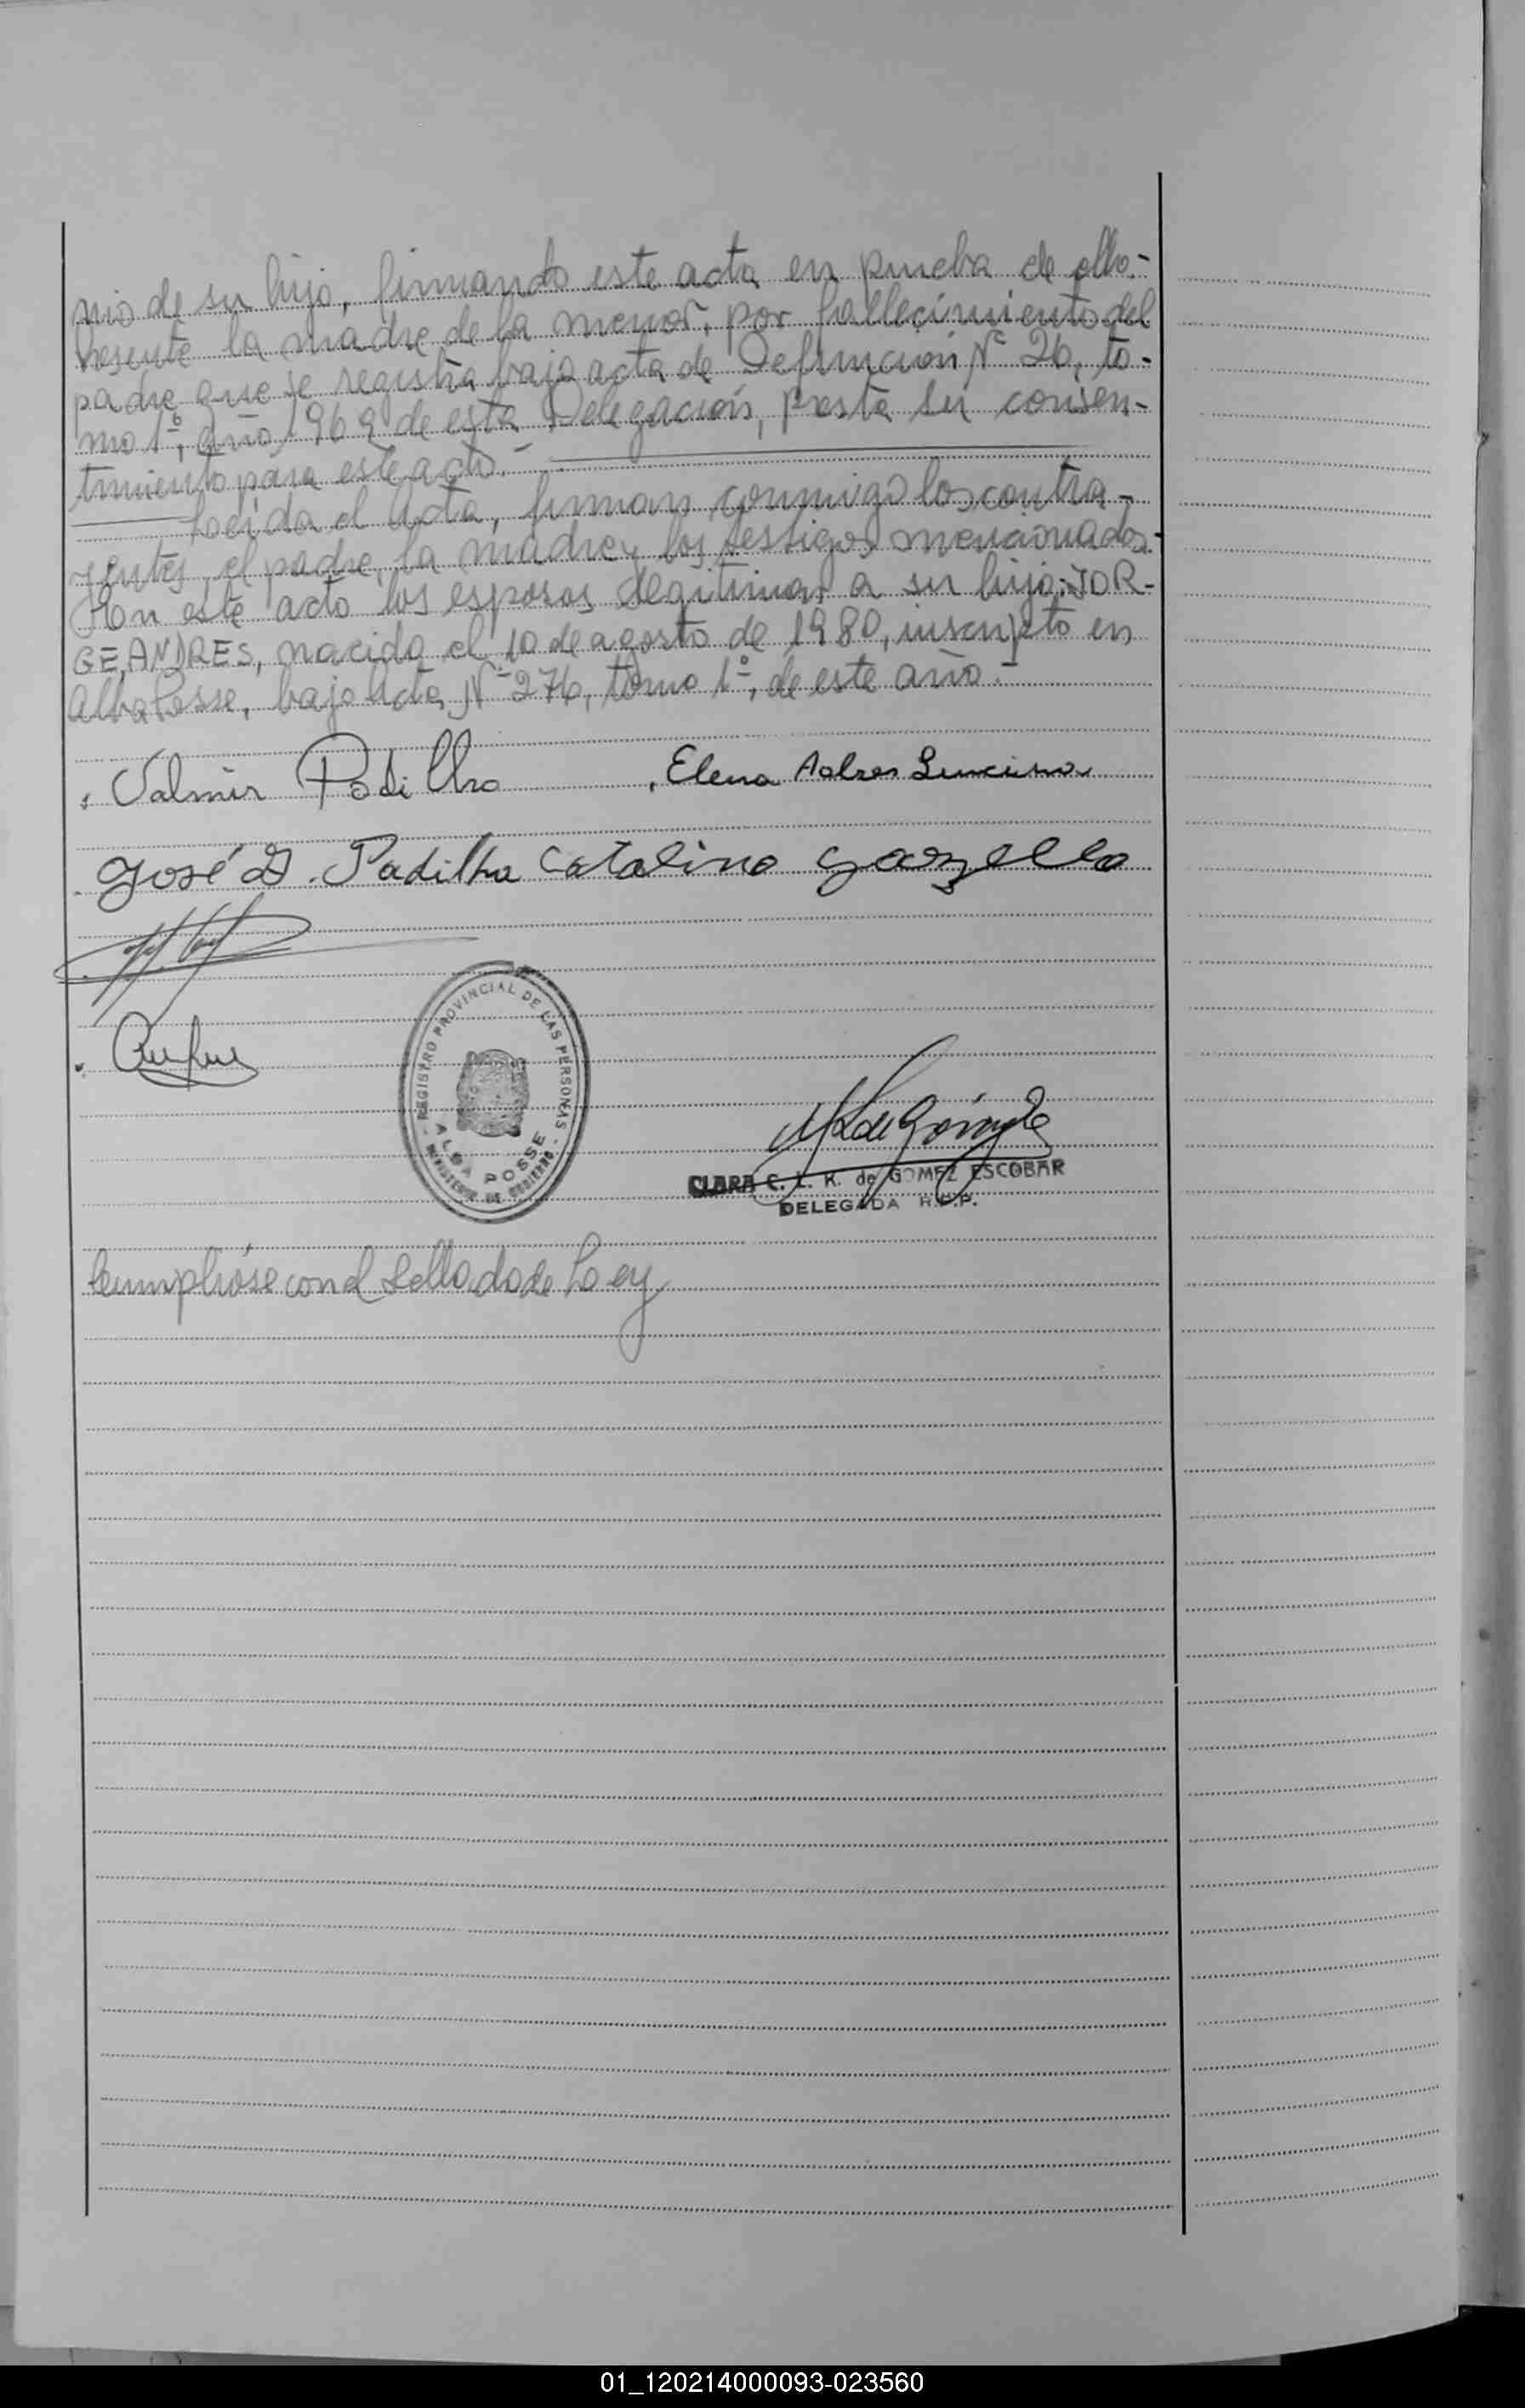 nio de su hijo, firmando este acta en prueba de ello.-
Presente la madre de la menor, por fallecimiento del
padre que se registra bajo acta de Defunción Nº 26, to-
mo 1º, año 1969 de esta Delegación, presta su consen-
timiento para este acto.-
Leída el Acta, firman conmigo los contra-
yentes, el padre, la madre y los testigos mencionados.-
En este acto los esposos legitiman a su hijo: JOR-
GE ANDRES, nacido el 10 de agosto de 1980, inscripto en
Alba Posse, bajo Acta Nº 276, tomo 1º, de este año.-
Valmir Padilha Elena
José D. Padilha Catalina
REGISTRO PROVINCIAL DE LAS PERSONAS
ALBA POSSE
MINISTERIO DE GOBIERNO
CLARA C. L. K. de GOMEZ ESCOBAR
DELEGADA R.P.P.
Cumplióse con el Sellado de Ley
01_120214000093-023560